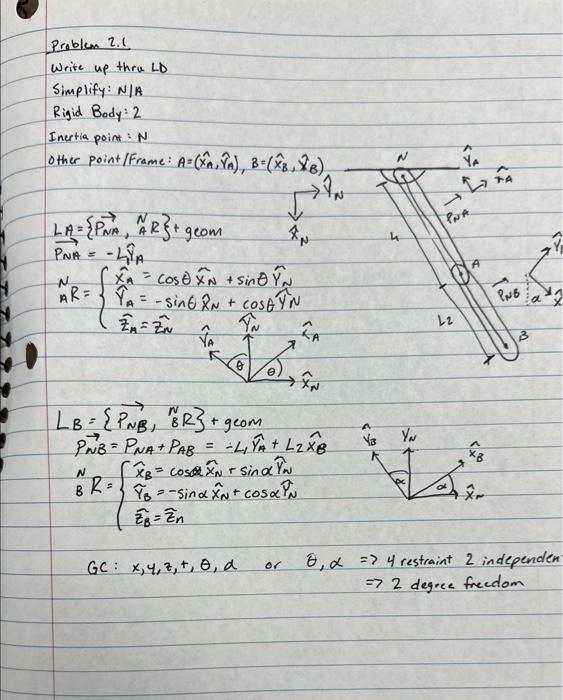 Problem 2.1
Write up thru LD
Simplify: N/A
Rigid Body: 2
Inertia point: N
Other point/Frame: A=(x̂A, ŶA), B=(x̂B, ŶB)
N
ŶA
x̂A
ŶN
x̂N
PNA
L1
A
PNB
α
L2
B
LA = {PNA, N A R} + geom
PNA = -L1ŶA
N A R = { x̂A = cosθ x̂N + sinθ ŶN
ŶA = -sinθ x̂N + cosθ ŶN
ẑA = ẑN
ŶA ŶN x̂A
θ θ
x̂N
LB = {PNB, N B R} + geom
PNB = PNA + PAB = -L1 ŶA + L2 x̂B
N B R = { x̂B = cosα x̂N + sinα ŶN
ŶB = -sinα x̂N + cosα ŶN
ẑB = ẑn
ŶB YN x̂B
α α
x̂N
GC: x, y, z, t, θ, α or θ, α => 4 restraint 2 independen
=> 2 degree freedom